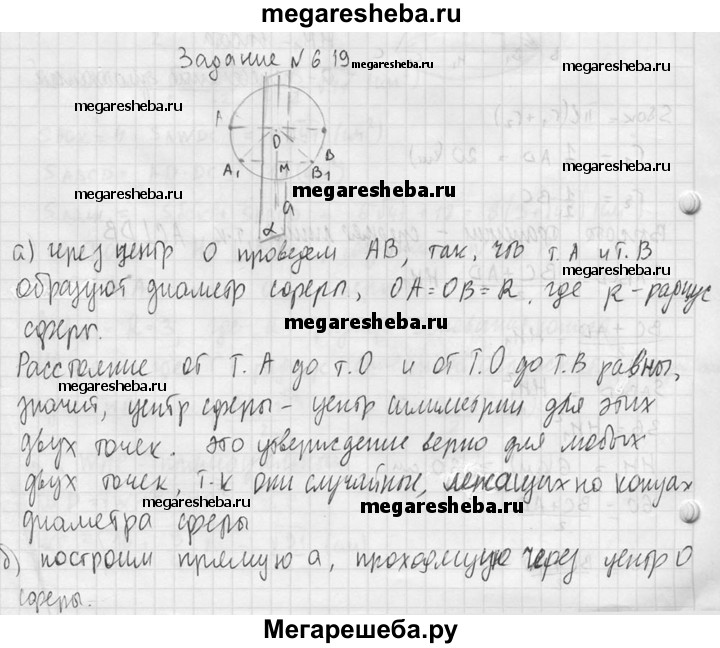 megaresheba.ru
Задание №619 megaresheba.ru
megaresheba.ru
megaresheba.ru
A
O
A₁
M
B
B₁
megaresheba.ru
a
α
а) через центр O проведем AB, так, что т. A и т. B
megaresheba.ru
образуют диаметр сферы, OA=OB=R, где R - радиус
сферы.
megaresheba.ru
Расстояние от т. A до т.O и от т.O до т.B равны,
megaresheba.ru
megaresheba.ru
значит, центр сферы - центр симметрии для этих
двух точек. это утверждение верно для любых
двух точек, т-к они случайные, лежащих на концах
megaresheba.ru
megaresheba.ru
диаметра сферы
б) построим прямую a, проходящую через центр O
megaresheba.ru
сферы.
Мегарешеба.ру